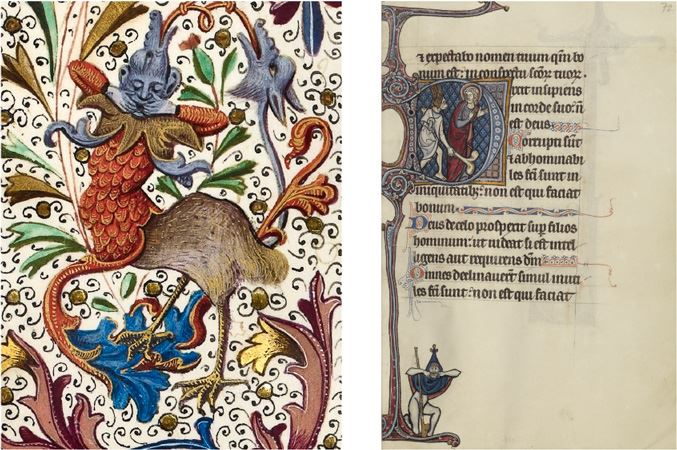 72
& expectabo nomen tuum qm̄ bo
num est: in conspectu scōꝝ tuoꝝ.
Dixit insipiens
in corde suo: nō
est deus
Corrupti sūt
& abhominabi
les fc̄i sunt in
iniquitatib: non est qui faciat
bonum
Deus de celo prospexit sup filios
hominum: ut uideat si est intel
ligens aut requirens dm̄
Omnes declinauerūt simul inuti
les fc̄i sunt: non est qui faciat